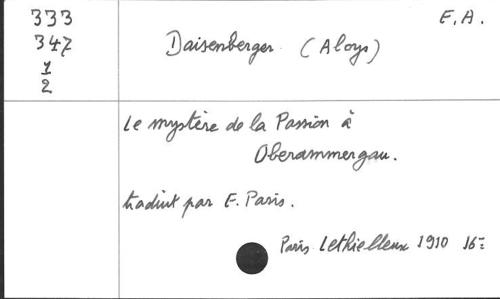 333
347
1
2
E. A.
Daisenberger (Aloys)
Le mystère de la Passion à
Oberammergau.
traduit par E. Paris.
Paris Lethielleux 1910 16º